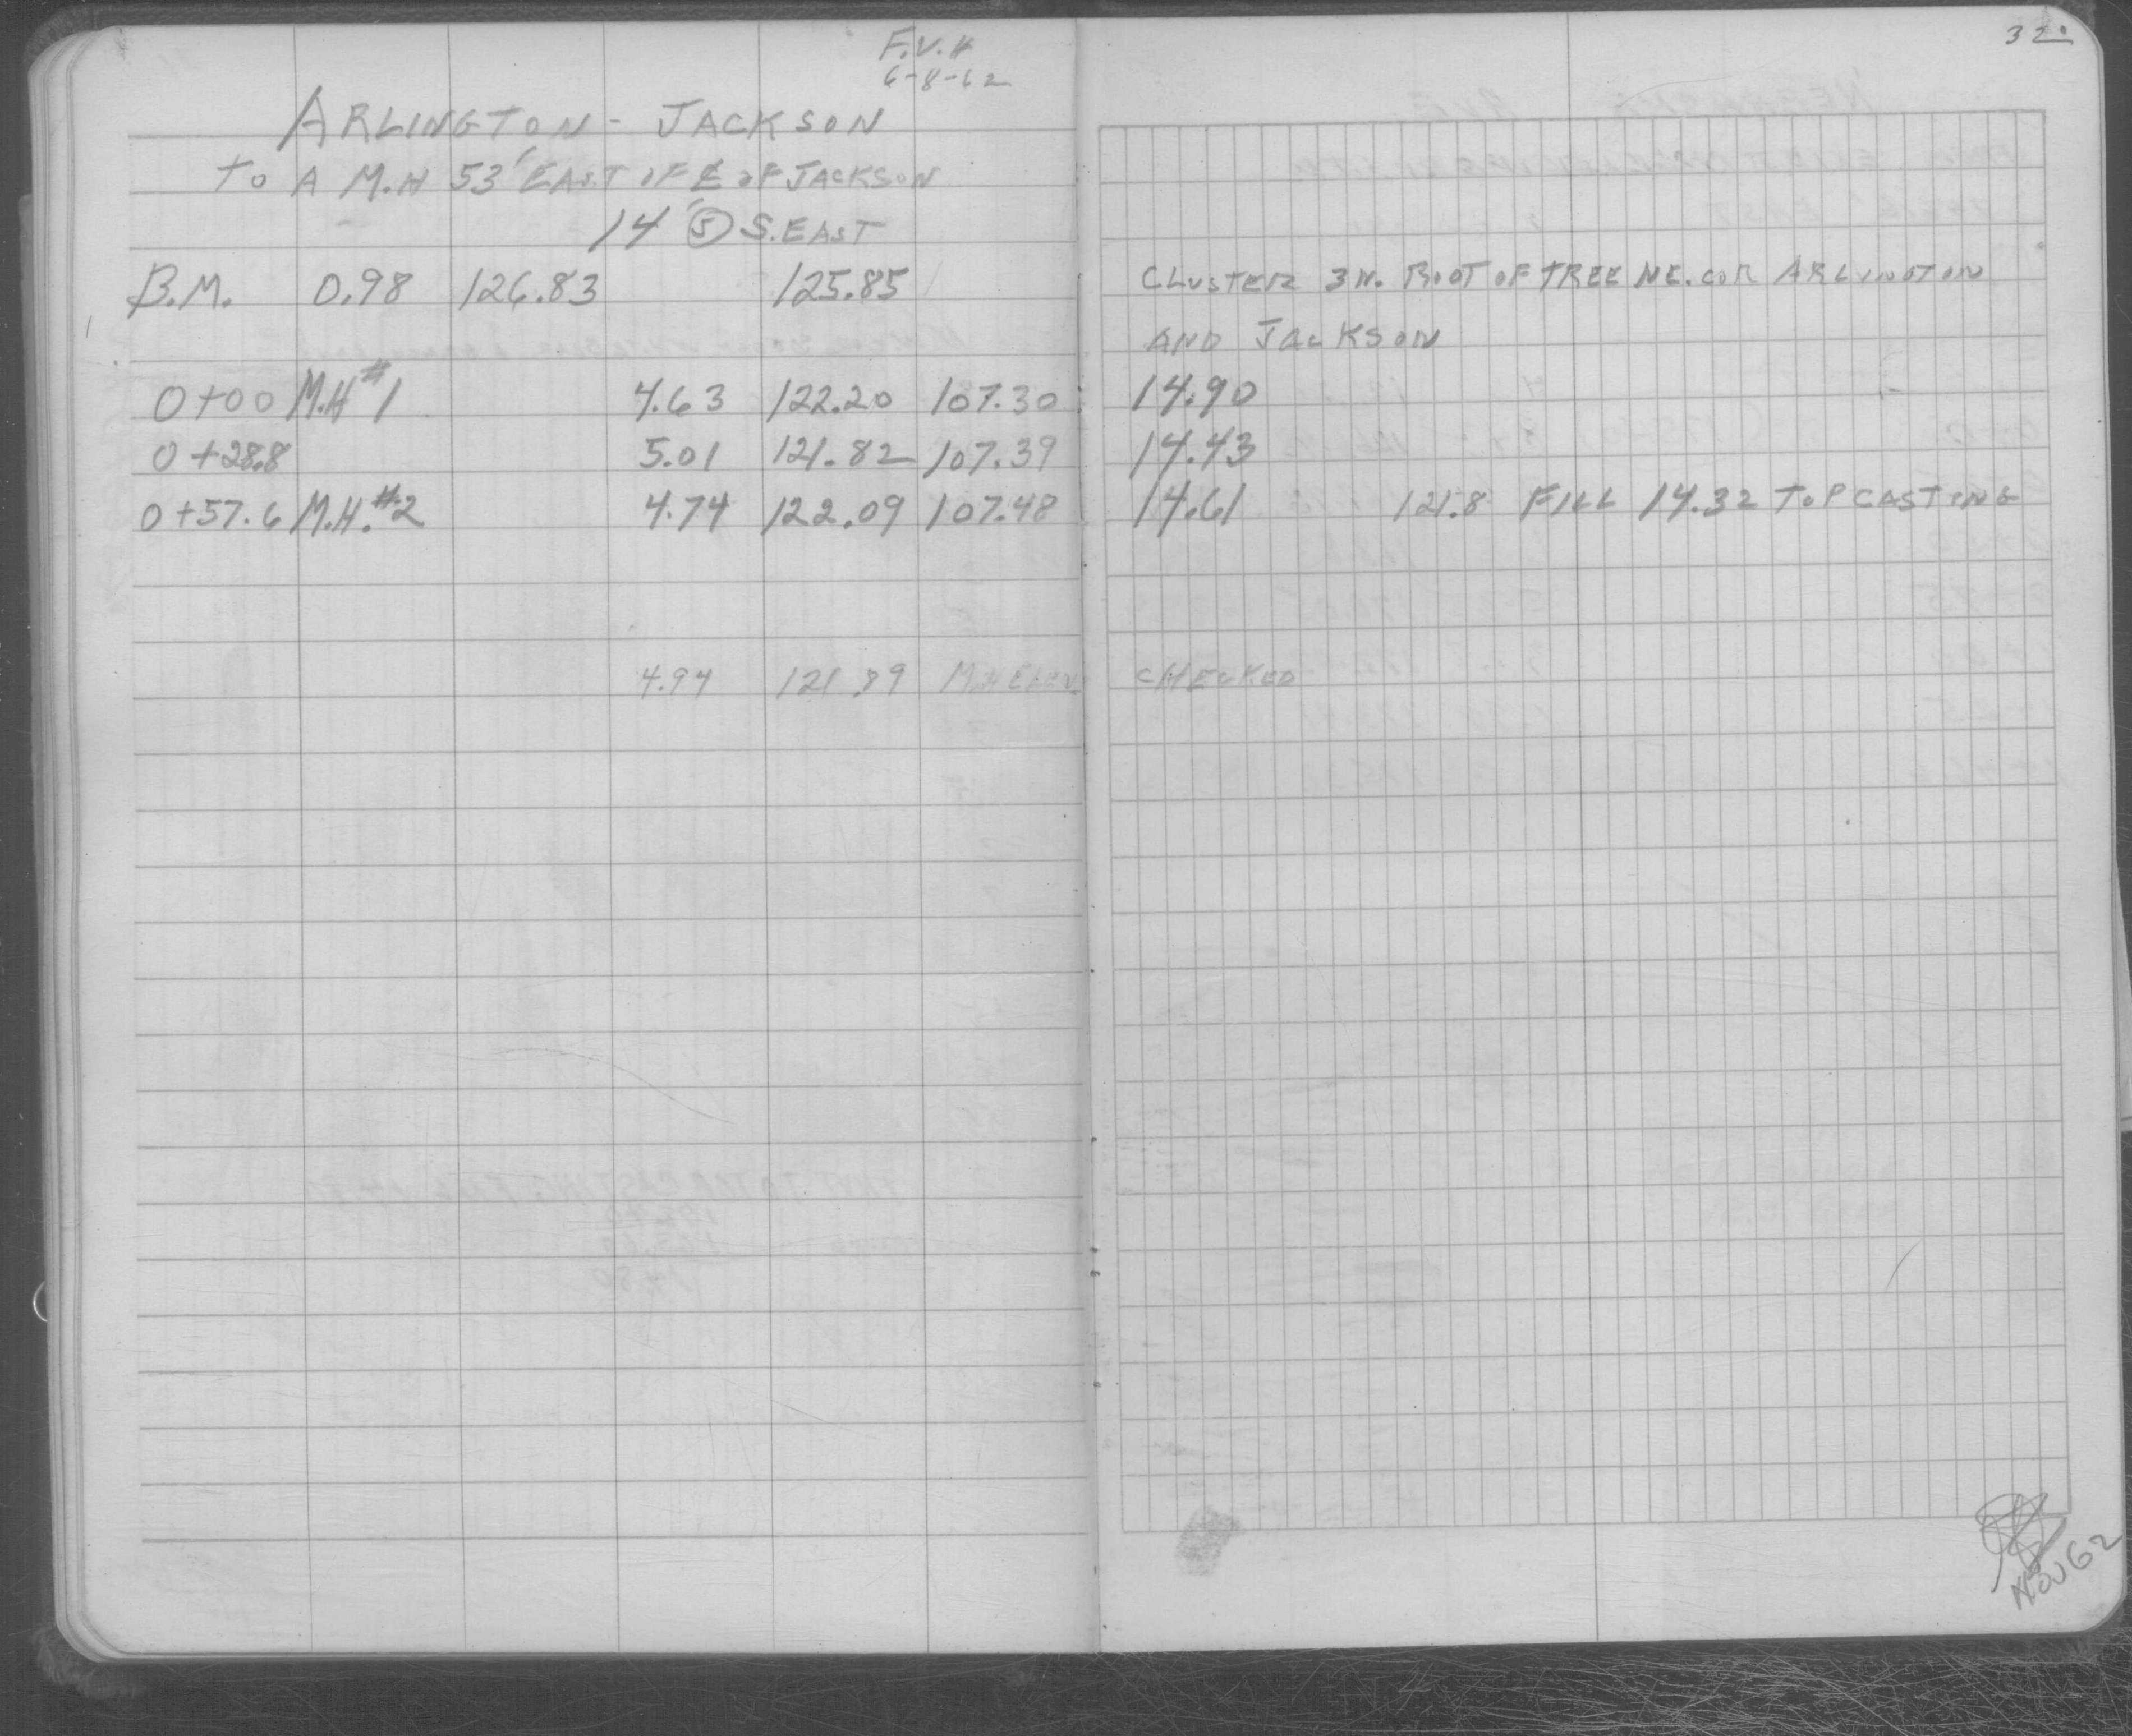 32.
F.V.H
6-8-62
ARLINGTON - JACKSON
TO A M.H 53' EAST OF ℄ OF JACKSON
14' Ⓢ S. EAST
B.M. 0.98 126.83 125.85 CLUSTER 3 N. ROOT OF TREE NE. COR ARLINGTON
AND JACKSON
0+00 M.H #1 4.63 122.20 107.30 14.90
0+28.8 5.01 121.82 107.39 14.43
0+57.6 M.H. #2 4.74 122.09 107.48 14.61 121.8 FILL 14.32 TOP CASTING
4.94 121.89 M.H ELEV CHECKED
NOV 62